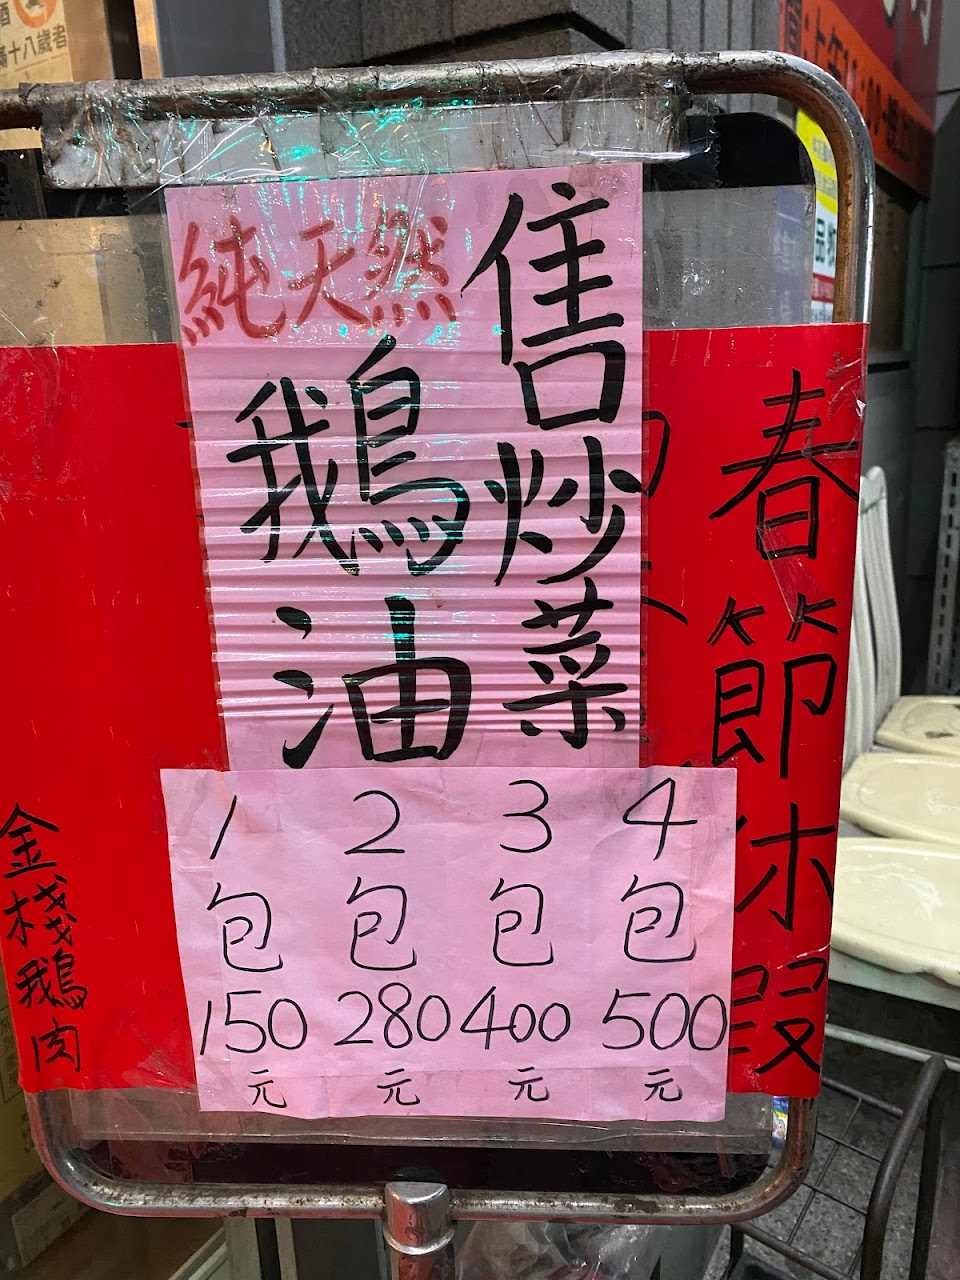 售炒菜
純天然
鵝油
1包150元
2包280元
3包400元
4包500元
春節休假
金棧鵝肉
滿十八歲者